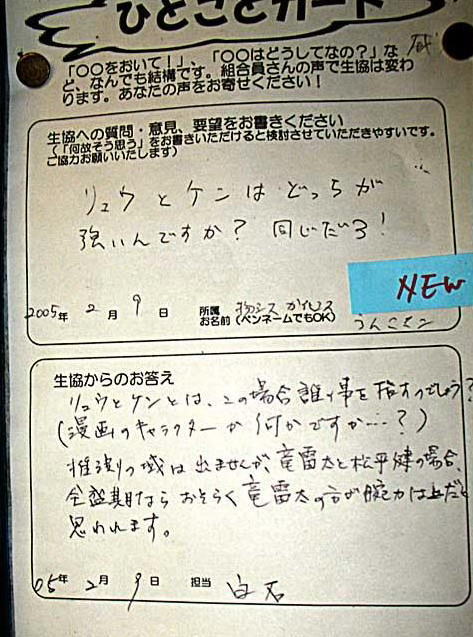 ひとことカード
「〇〇をおいて!」、「〇〇はどうしてなの?」な
ど、なんでも結構です。組合員さんの声で生協は変わ
ります。あなたの声をお寄せください!
生協への質問・意見、要望をお書きください
(「何故そう思う」をお書きいただけると検討させていただきやすいです。
ご協力お願いいたします)
リュウとケンはどっちが
強いんですか? 同じだろ!
NEW
2005年 2月 9日 所属 物シス
お名前 (ペンネームでもOK)
生協からのお答え
リュウとケンとは、この場合誰の事を指すのでしょう?
(漫画のキャラクターか何かですか…?)
推測の域は出ませんが、竜雷太と松平健の場合、
全盛期ならおそらく竜雷太の方が腕力は上だと
思われます。
05年 2月 9日 担当 白石